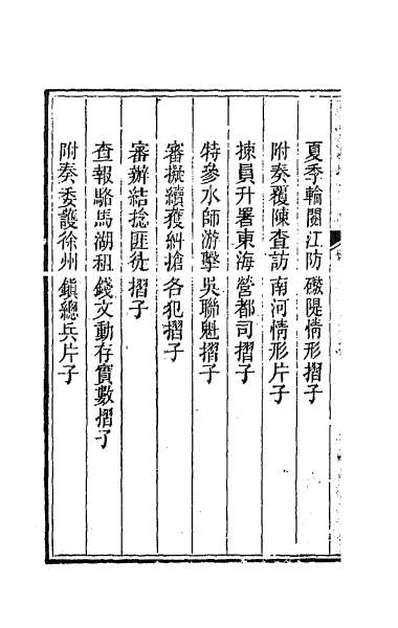 夏季輪閱江防礮隄情形摺子
附奏覆陳查訪南河情形片子
揀員升署東海營都司摺子
特參水師游擊吳聯魁摺子
審擬續獲糾搶各犯摺子
審辦結捻匪徒摺子
查報駱馬湖租錢文動存實數摺子
附奏委護徐州鎮總兵片子